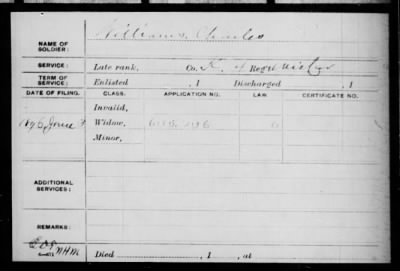 Williams, Charles
NAME OF
SOLDIER:
SERVICE: Late rank, Co. Reg't
TERM OF
SERVICE: Enlisted , 1 Discharged , 1
DATE OF FILING. CLASS. APPLICATION NO. LAW. CERTIFICATE NO.
Invalid,
1896 June Widow,
Minor,
ADDITIONAL
SERVICES:
REMARKS:
Died , 1 , at